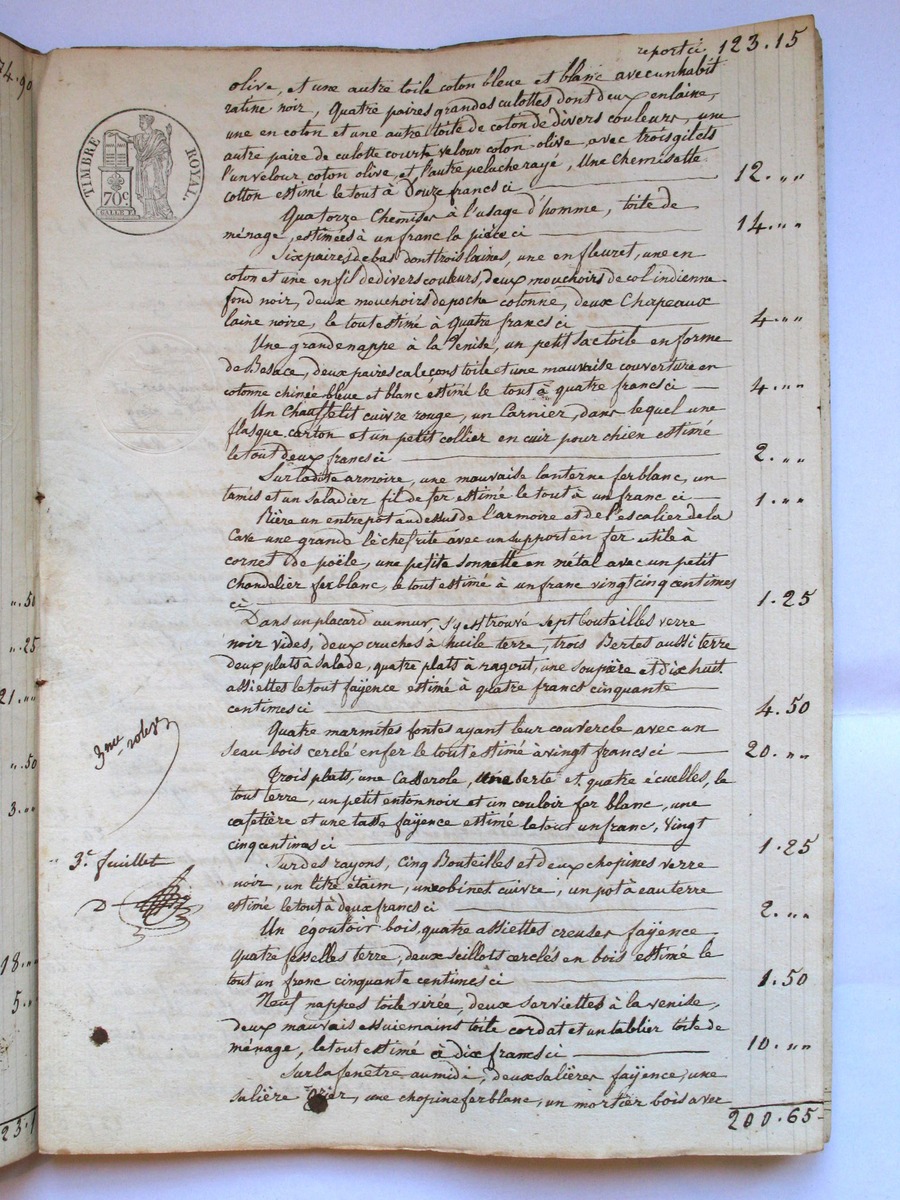 report ci 123.15
olive, et une autre toile coton bleue et blanc avec un habit
ratine noir, Quatre paires grandes culottes dont deux en laine,
une en coton et une autre toile de coton de divers couleurs, une
autre paire de culotte courte velour coton olive, avec trois gilets
l'un velour coton olive, et l'autre peluche rayé, Une chemisette
cotton estimé le tout à Douze francs ci 12. "
Quatorze Chemises à l'usage d'homme, toile de
ménage, estimées à un franc la pièce ci 14. "
Six paires de bas dont trois laines, une en fleuret, une en
coton et une en fil de divers couleurs, deux mouchoirs de col indienne
fond noir, deux mouchoirs de poche cotonne, deux Chapeaux
laine noire, le tout estimé à quatre francs ci 4. "
Une grande nappe à la Venise, un petit sac toile en forme
de Besace, deux paires caleçons toile et une mauvaise couverture en
cotonne chinée bleue et blanc estimé le tout à quatre francs ci 4. "
Un Chauffelit cuivre rouge, un Carnier, dans lequel une
flasque carton et un petit collier en cuir pour chien estimé
le tout deux francs ci 2. "
Sur ladite armoire, une mauvaise lanterne ferblanc, un
tamis et un saladier fil de fer estimé le tout à un franc ci 1. "
Rière un entrepot au dessus de l'armoire et de l'escalier de la
Cave une grande lèchefrite avec un support en fer utile à
cornet de poële, une petite sonnette en métal avec un petit
chandelier ferblanc, le tout estimé à un franc vingt cinq centimes
ci 1.25
Dans un placard au mur, s'y est trouvé sept bouteilles verre
noir vides, deux cruches à huile terre, trois Bertes aussi terre
deux plats à salade, quatre plats à ragout, une soupière et dix huit
assiettes le tout faÿence estimé à quatre francs cinquante
centimes ci 4.50
Quatre marmites fontes ayant leur couvercle avec un
seau bois cerclé en fer le tout estimé à vingt francs ci 20. "
Trois plats, une Casserole, une berte et quatre écuelles, le
tout terre, un petit entonnoir et un couloir fer blanc, une
cafetière et une tasse faÿence estimé le tout un franc, vingt
cinq centimes ci 1.25
Sur des rayons, Cinq Bouteilles et deux chopines verre
noir, un litre étaim, un robinet cuivre, un pot à eau terre
estimé le tout à deux francs ci 2. "
Un egoutoir bois, quatre assiettes creuses faÿence
quatre fesselles terre, deux seillots cerclés en bois estimé le
tout un franc cinquante centimes ci 1.50
Neuf nappes toile virée, deux serviettes à la venise,
deux mauvais essuiemains toile cordat et un tablier toile de
ménage, le tout estimé à dix francs ci 10. "
Sur la fenêtre au midi, deux salières faÿence, une
salière, une chopine ferblanc, un mortier bois avec
200.65
TIMBRE ROYAL
70c.
3me rôle
3.e feuillet
".50
".25
21. "
".50
3. "
18. "
5. "